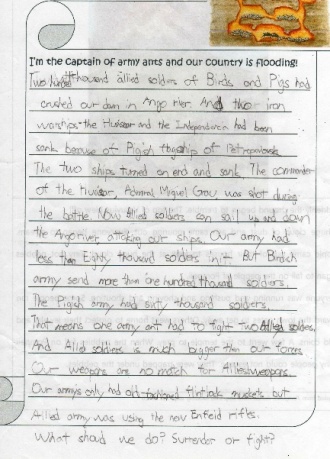 I'm the captain of army ants and our country is flooding!
Two hundred thousand allied soldiers of Birds and Pigs had
crushed our dam in Argo river. And the iron
warships the Huascar and the Independencia had been
sank because of Pigish flagships of Petropavlovsk
The two ships turned on end and sank. The commander
of the Huascar, Admiral Miguel Grau was shot during
the battle. Now Allied soldiers can sail up and down
the Argo river attacking our ships. Our army had
less than Eighty thousand soldiers in it. But Birdish
army send more than one hundred thousand soldiers.
The Pigish army had sixty thousand soldiers.
That means one army ant had to fight two Allied soldiers.
And Allied soldiers is much bigger than our forces
Our weapons are no match for Allied weapons.
Our armys only had old-fashioned flintlock muskets but
Allied army was using the new Enfeild rifles.
What should we do? Surrender or fight?